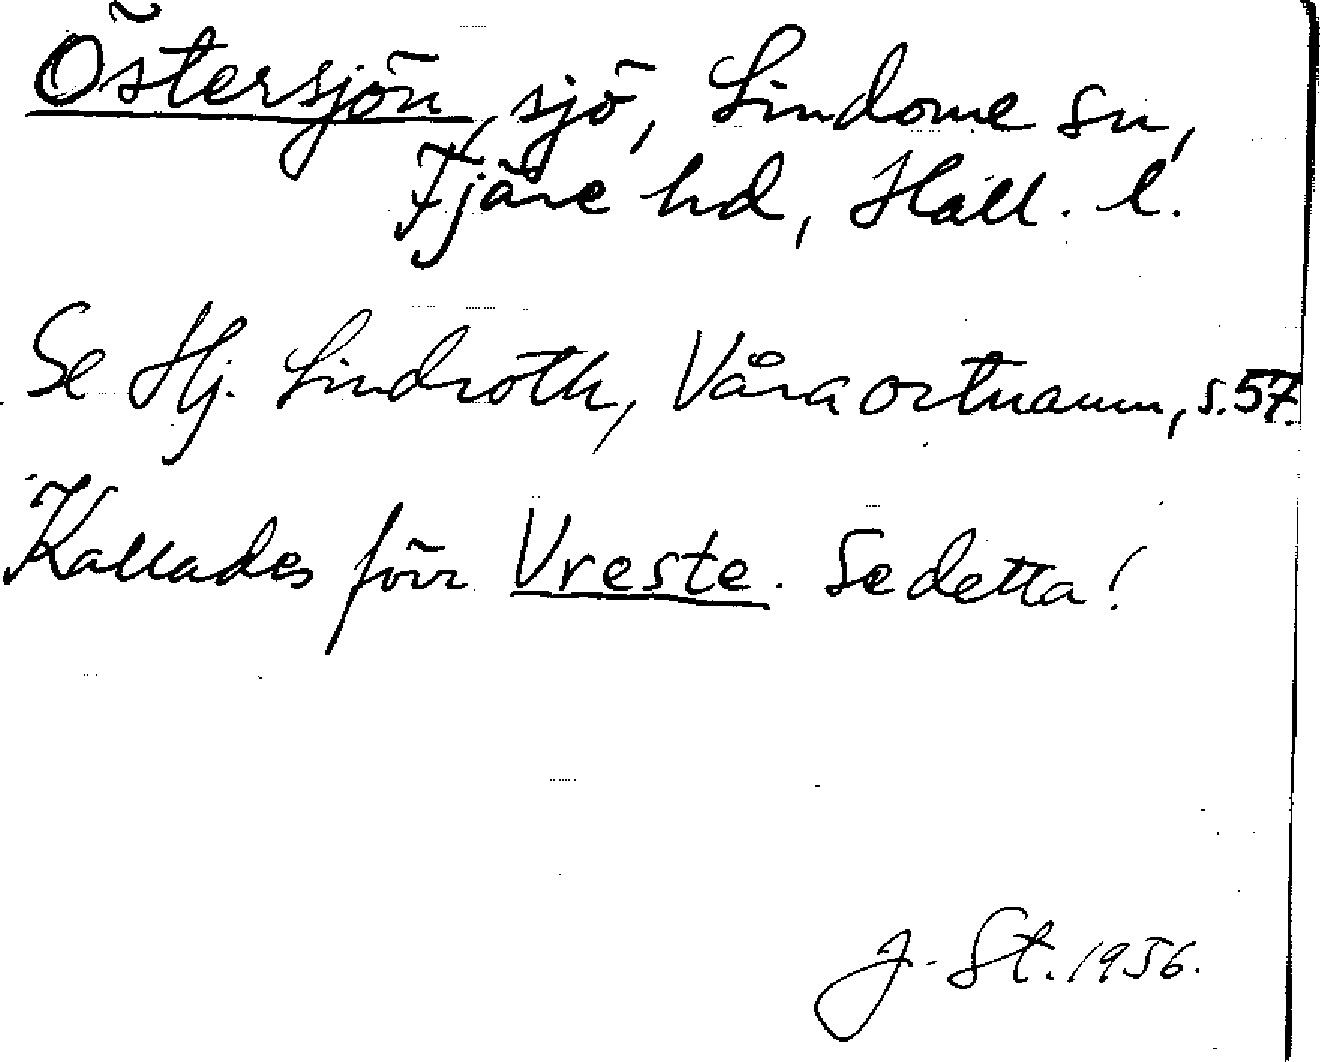 Östersjön, sjö, Lindome sn,
Fjäre hd, Hall. l.
Se Hj. Lindroth, Våra ortnamn, s. 57.
Kallades förr Vreste. Se detta!
J. St. 1956.